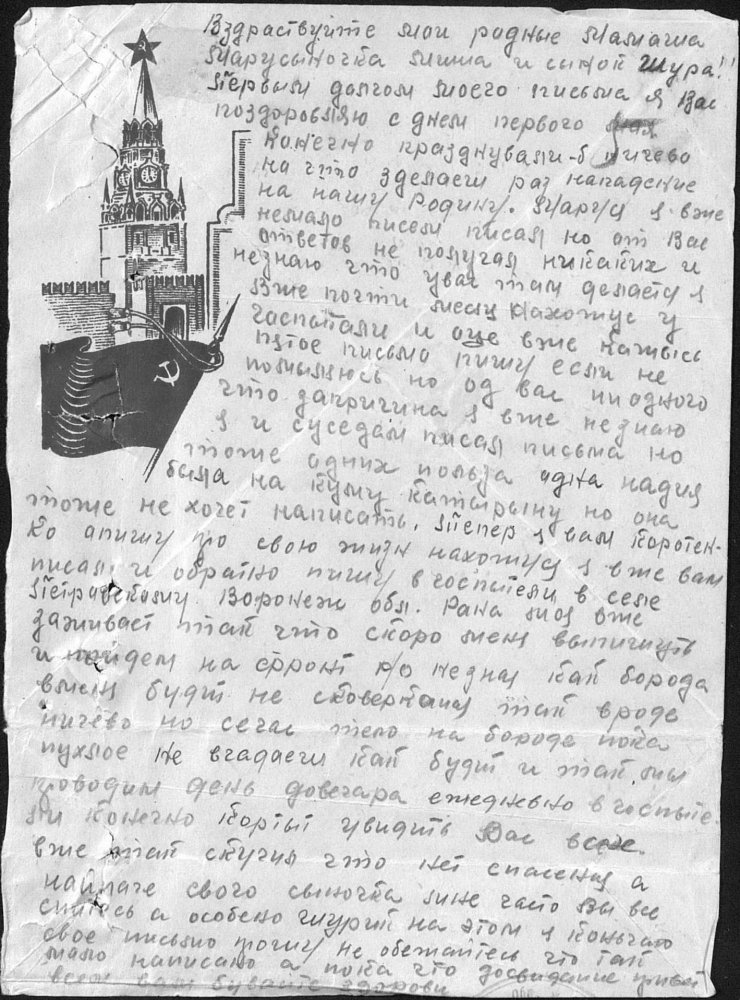 Вздраствуйте мои родные Мамаша
Марусыночка миша и сынок Шура!!
Первым долгом моего письма я Вас
поздоровляю с днем первого мая
конечно празднували-б ничево
на што зделаеш раз нападение
на нашу Родину. Маруся я вже
немало писем писал но от Вас
ответов не получал никаких и
незнаю что увас там делается я
Вже почти месяц нахожус у
Госпытали и оце вже кажысь
пятое письмо пишу если не
помыляюсь но од вас ниодного
что запричина я вже незнаю
я и суседам писал письма но
тоже одних польза одна надия
была на куму Катырыну но она
тоже не хочет написать. Тепер я вам коротен-
ко апишу про свою жизн нахожуся я вже вам
писал и обратно пишу в госпытели в селе
Петравскаму. Воронеж обл. Рана моя вже
заживает так что скоро меня выпишуть
и пойдем на фронт но незнаю как борода
вменя будит не сковеркана так вроде
ничево но сечас тело на бороде пока
пухлое не вгадаеш как будит и так мы
проводим день довечара ежедневно в госпыте-
ли конечно кортыт увидить Вас всех
вже так скучил что нет спасения а
найпаче свого сыночка мне часто Вы все
снитесь а особено Шурик на этом я коньчаю
свое письмо прошу не обежайтесь что так
мало написано а пока что досвидание привет
всем вам бувайте здорови